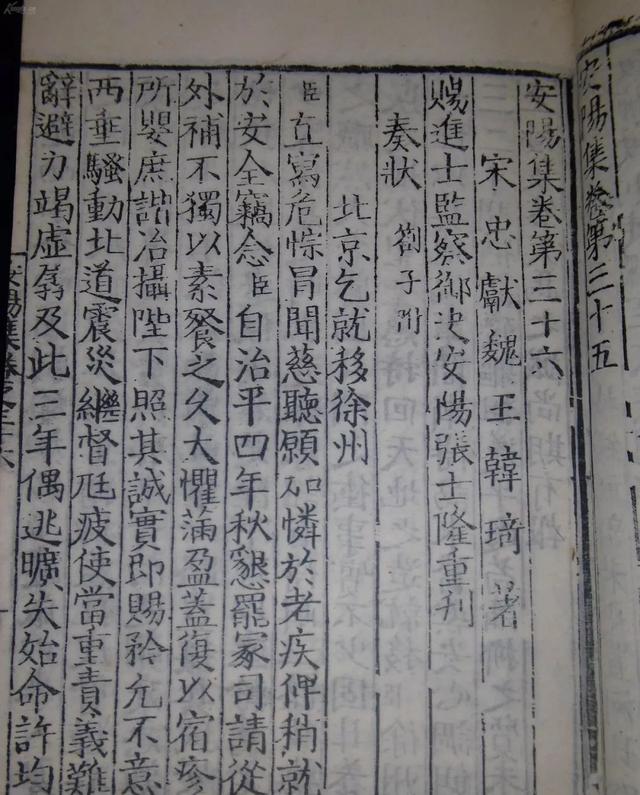 安陽集卷第三十五
安陽集卷第三十六
宋忠獻魏王韓琦著
賜進士監察御史安陽張士隆重刊
奏狀 劄子附
北京乞就移徐州
臣立寫危悰冒聞慈聽願加憐於老疾俾稍就
於安全竊念臣自治平四年秋懇罷冢司請從
外補不獨以素餐之久大懼滿盈蓋復以宿疹
所嬰庶諧治攝陛下照其誠實即賜矜允不意
西垂騷動北道震災繼督尫疲使當重責義難
辭避力竭虛孱及此三年偶逃曠失始命許均